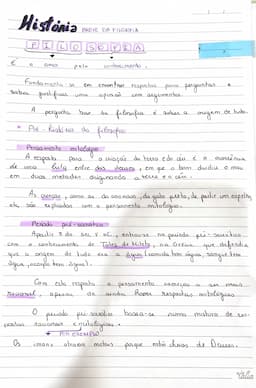 História PARTE DA FILOSOFIA
FILOSOFIA
É o amor pelo conhecimento.
Fundamenta-se em encontrar respostas para perguntas e
saber justificar uma opinião com argumentos.
A pergunta base da filosofia é sobre a origem de tudo.
da filosofia
Pensamento mitológico
A resposta para a criação da terra e do céu é a
de uma luta entre dois deuses, em que o bem dividiu o mau
em duas metades originando a terra e o céu.
As crenças, como as do são nicolau, do gato preto, de partir um espelho,
etc, são explicadas com o pensamento mitológico.
Período pré-socrático
Após o séc. V aC, entra-se no período pré-socrático
com o conhecimento de Tales de Mileto, na Grécia, que defendia
que a origem de tudo era a água (comida tem água, sangue tem
água, corpo tem água).
Com esta resposta o pensamento começou a ser mais
racional, apesar de ainda haver respostas mitológicas
O período pré-socrático baseia-se numa mistura de res-
postas racionais e mitológicas.
POR EXEMPLO
Os ímans atraem metais porque estão cheios de Deuses.